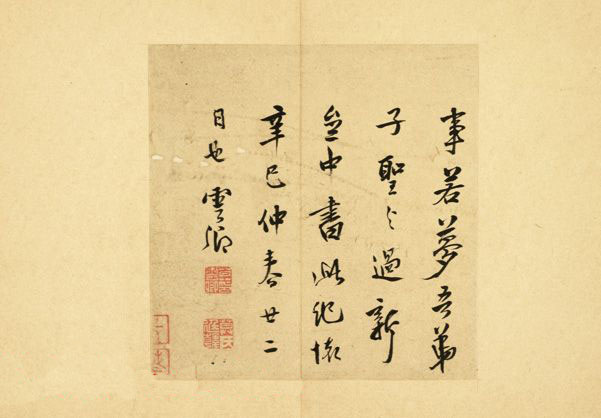 事若夢吾弟
子聖過新
中書此紀懷
辛巳仲春廿二
日也雲卿